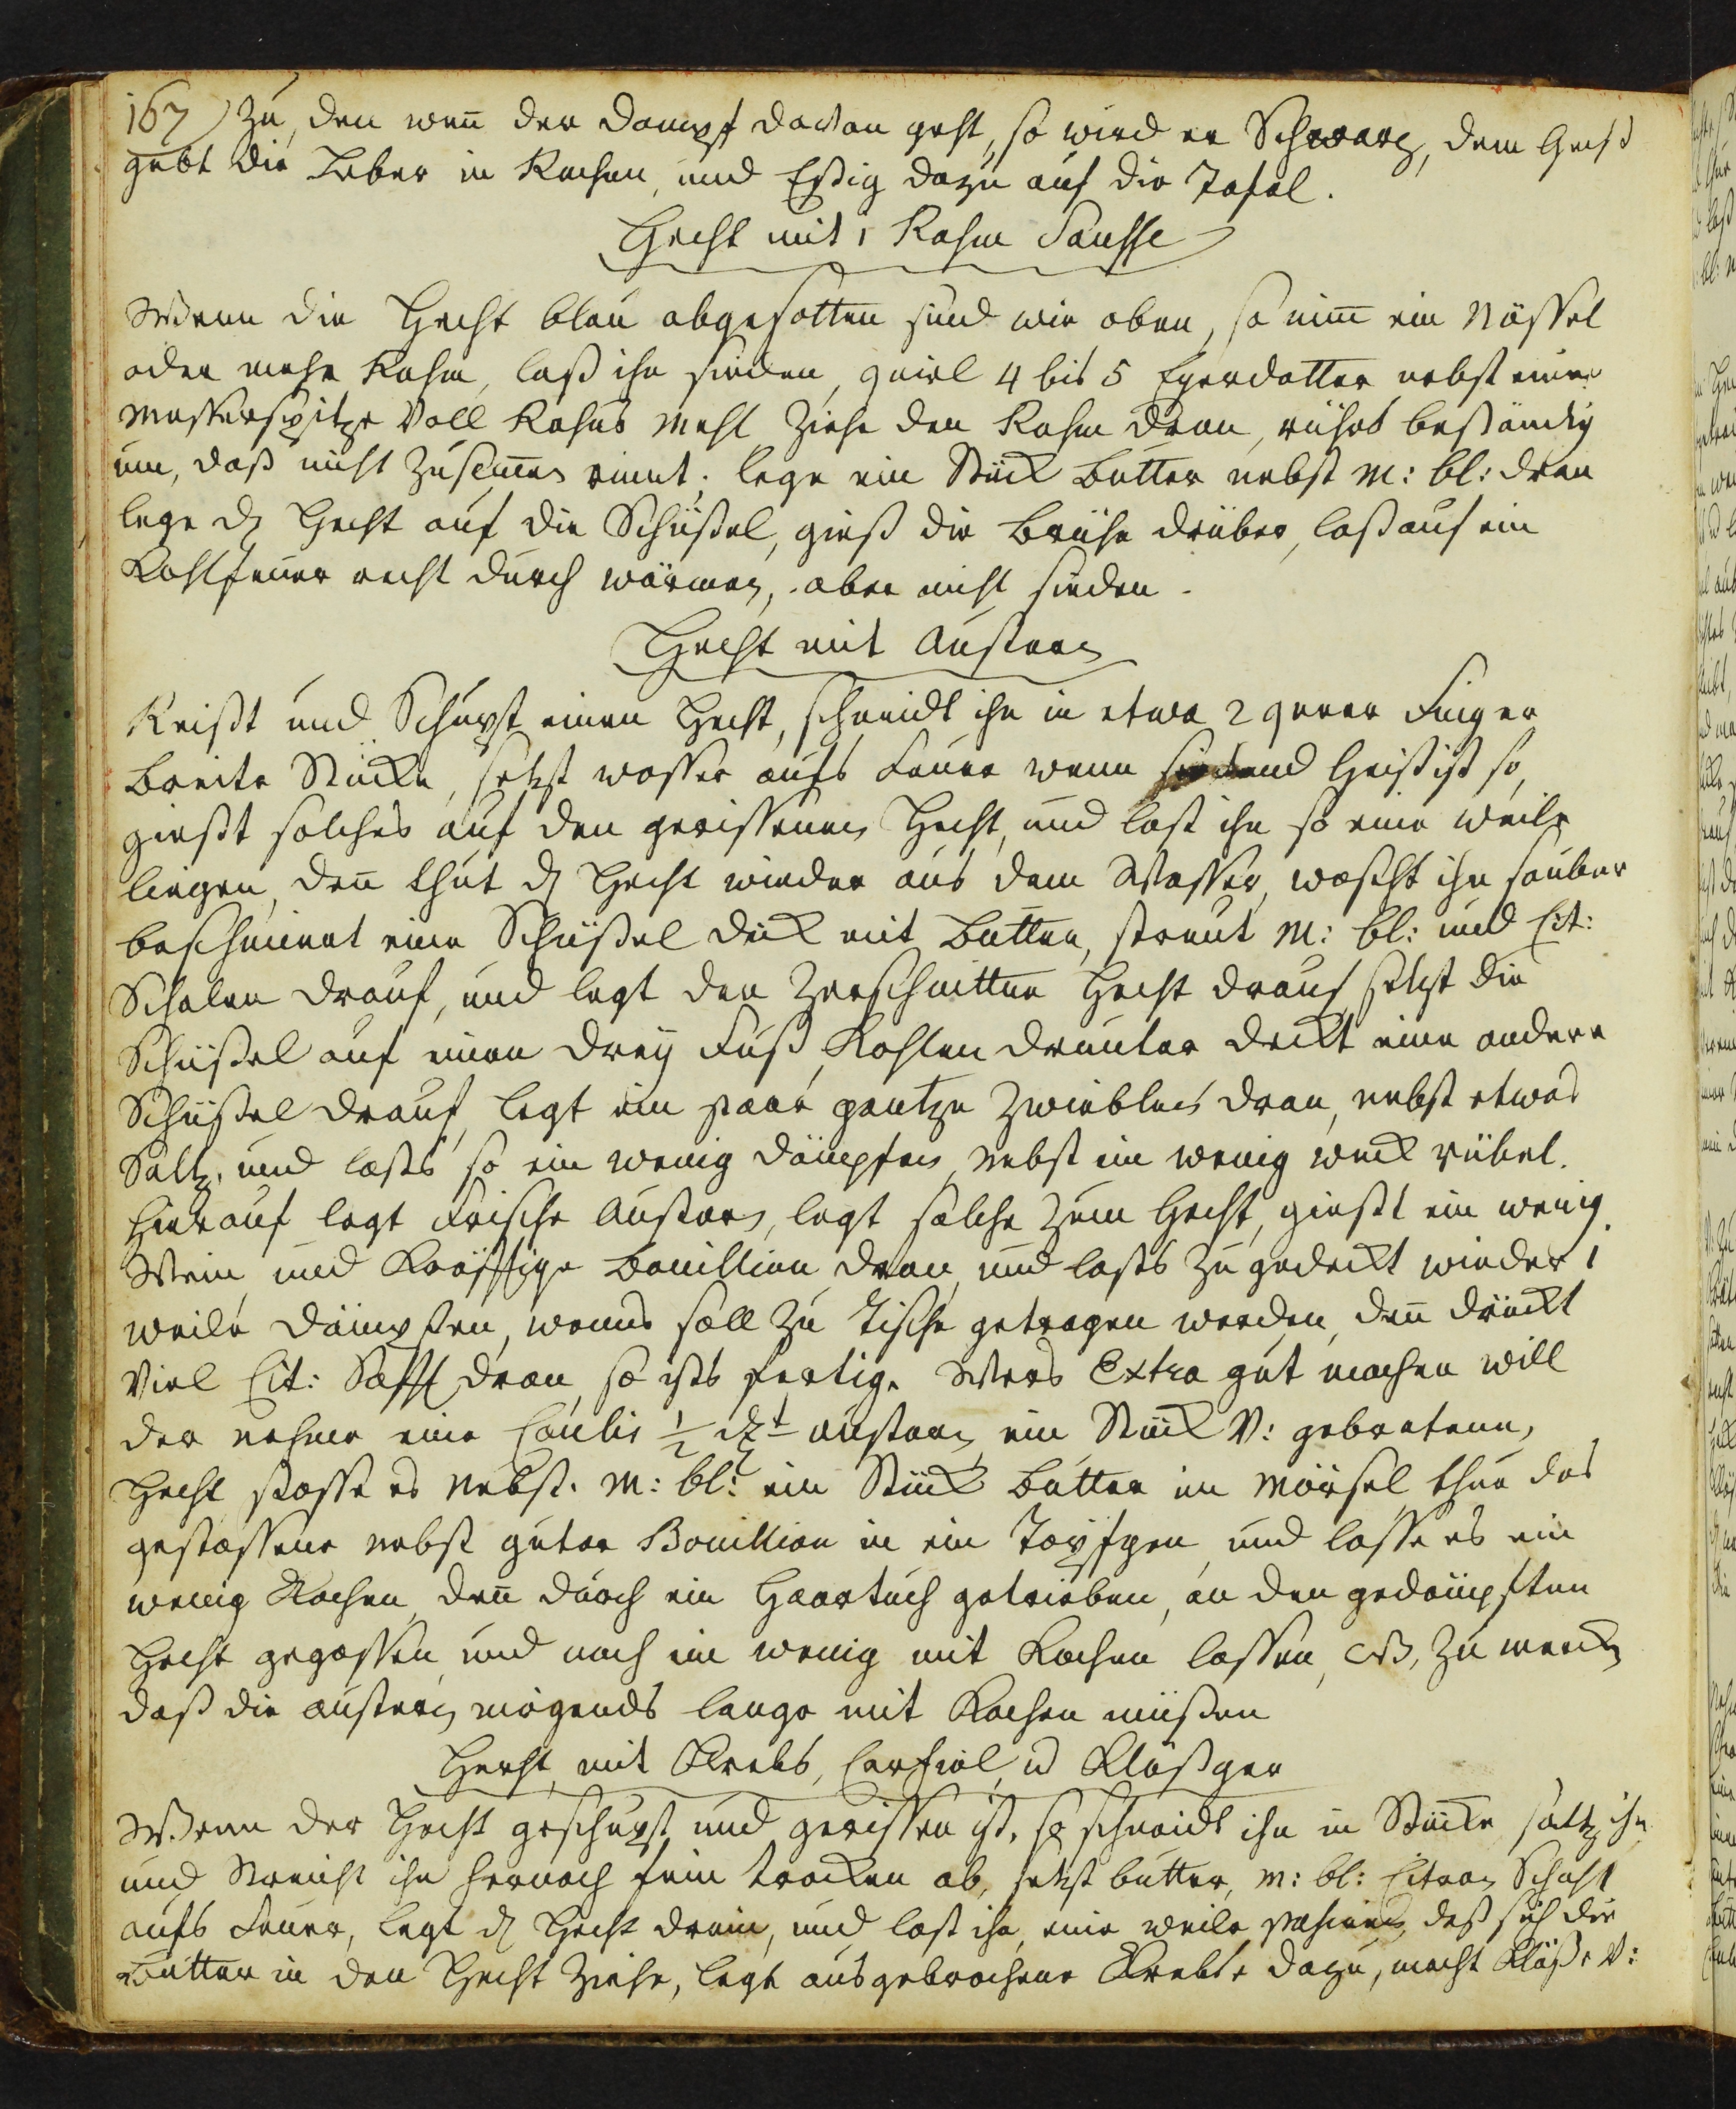 167) zu, den wen̄ der dampf davon geht, so wird er Schwarz, dem Hecht
gebt die Leber in Rachen, und Eßig dazu auf die Tafel.
Hecht mit 1 Rahm Sausse
Wenn die Hecht blau abgesotten sind wie oben, so nim̄ ein Nössel
oder mehr Rahm, laß ihn sieden, quirl 4 bis 5 Eyerdotter nebst einer
Messerspitze Voll Rahns Mehl ziehe den Rahm dran, rührs beständig
um, daß nicht zusam̄en rinnt; lege ein Stück Butter nebst M: bl: dran
lege d Hecht auf die Schüßel, gieß die Brühe drüber, laß auf ein
Kohlfeuer recht durch wärmen, aber nicht sieden.
Hecht mit Austern
Reißt und Schupt einen Hecht, schneidt ihn in etwa 2 querer Finger
breite Stücke, setzt wasser aufs Feuer wenn siedend heiß ist so,
gießt solches auf den gerissenen Hecht, und last ihn so eine weile
liegen, den̄ thut d Hecht wieder aus dem Wasser, wascht ihn sauber
beschmirt eine Schüßel dick mit Butter, streut M: bl: und Cit:
Schalen drauf, und legt den zerschnitten Hecht drauf setzt die
Schüßel auf einen drey Fuß, Kohlen drunter deckt eine andere
Schüßel drauf, legt ein paar gantze Zwieblen dran, nebst etwas
Saltz, und lasts so ein wenig dämpfen, nebst ein wenig weck rübel.
Hierauf legt frische Austern, legt solche zum Hecht, gießt ein wenig
Wein und Kräfftige Bouillion dran, und lasts zu gedeckt wieder 1
weile dämpfen, wenns soll zu Tische getragen werden, den̄ drückt
viel Cit: Safft dran, so ists fertig. Wers Extra gut machen will
der nehme eine Coulis ½ austern ein Stück V: gebratenen,
Hecht stosse es nebst. M: bl: ein Stück Butter im Mörsel thue das
gestossene nebst guter Bouillion in ein Töpfgen, und lasse es ein
wenig Kochen, den̄ durch ein Haartuch getrieben, an den gedämpften
Hecht gegossen, und noch ein wenig mit Kochen lassen, NB, zu merck
daß die austern nirgends lange mit Kochen müßen
Hecht mit Krebs, Carfiol, u Klößger
Wenn der Hecht geschupt, und gerissen ist, so schneidt ihn in Stücke saltz ihn
und streicht ihn hernach fein trocken ab, setzt butter, M: bl: Citron Schahl
aufs Feuer, legt d Hecht drein, und last ihn, eine weile pasiren, daß sich die
Butter in den Hecht ziehe, legt ausgebrochene Krebse dazu, macht Klöße V: